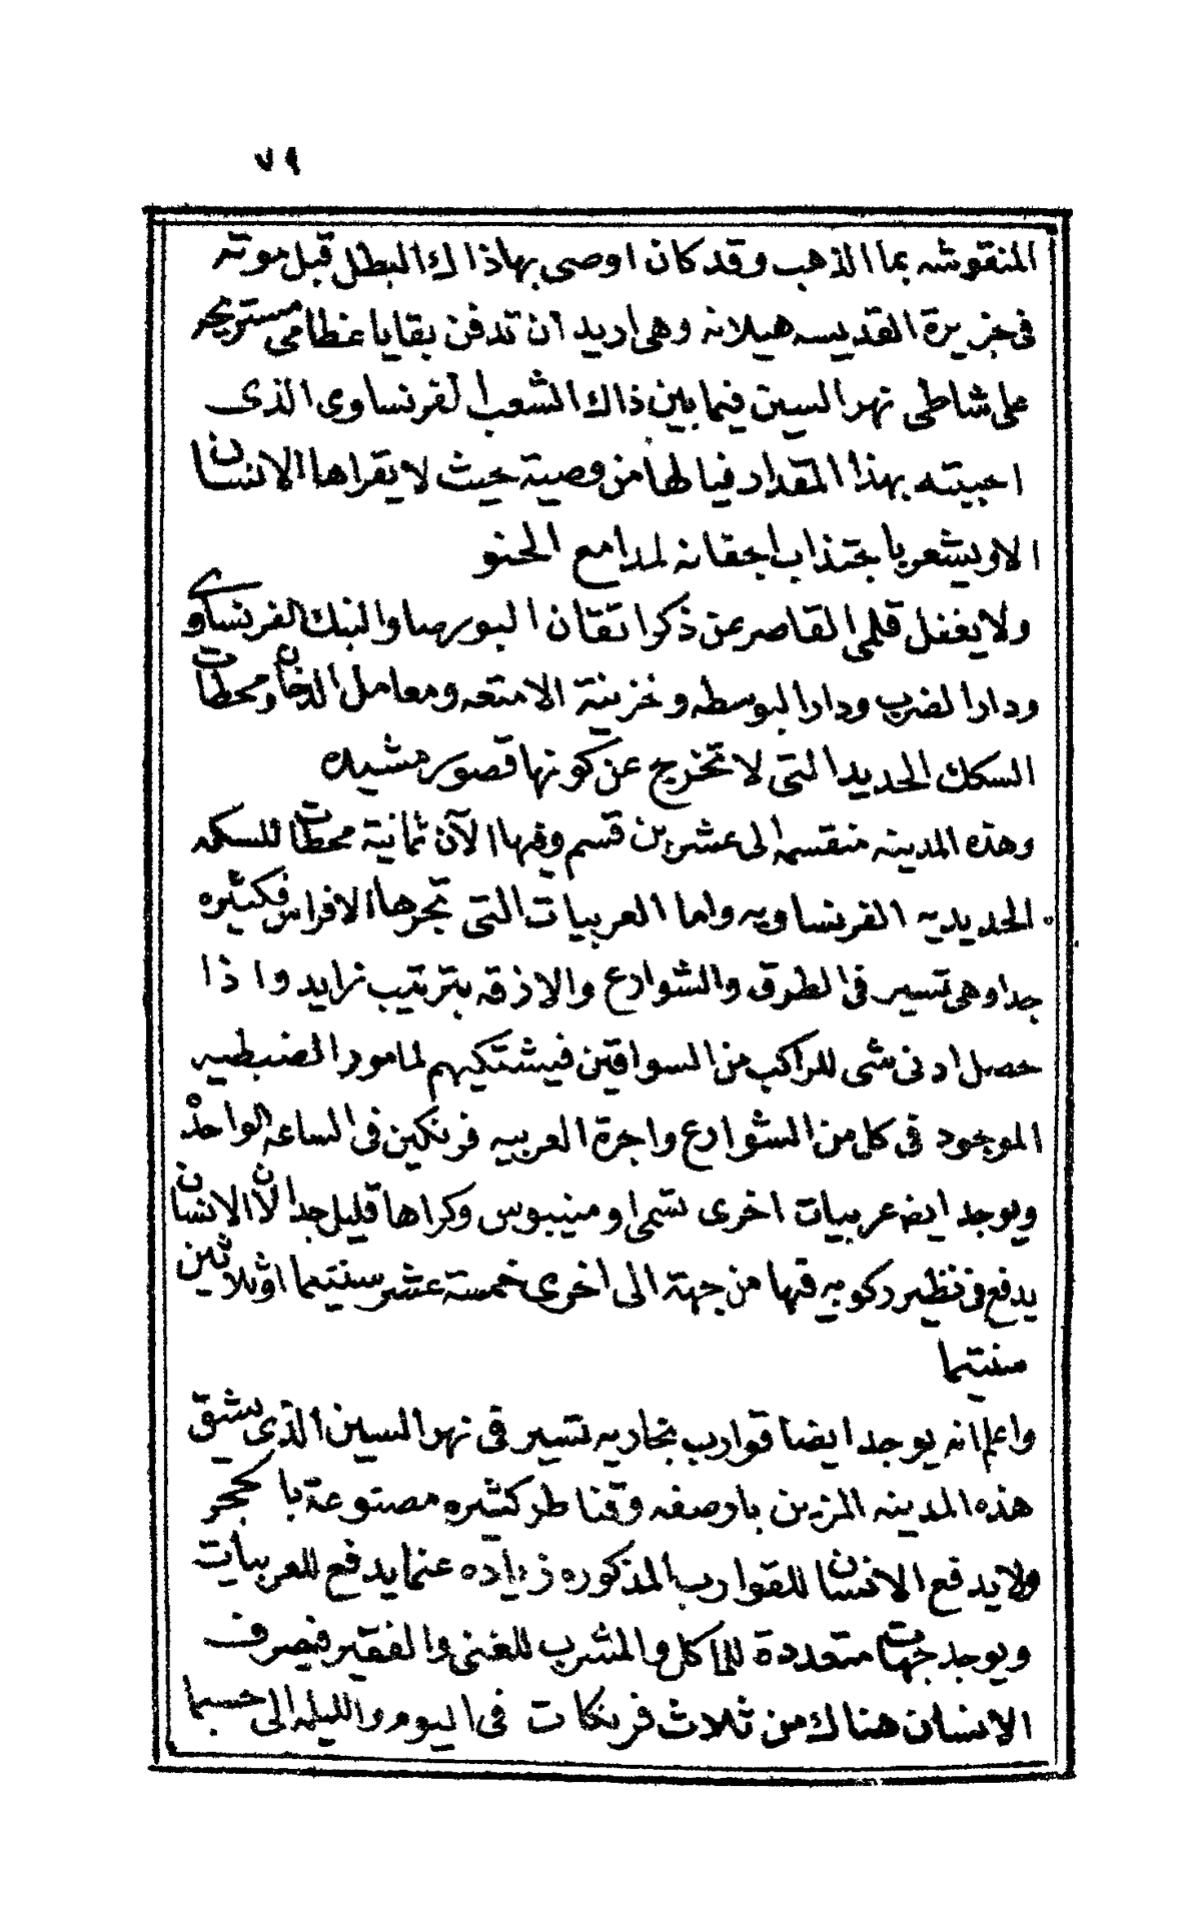 ٧٩
المنقوشه بماالذهب وقد كان اوصى بهاذاك البطل قبل موته
فى جزيرة القديسه هيلانه وهى اريد ان تدفن بقايا عظامى مستريحه
على شاطى نهر السين فيما بين ذاك الشعب الفرنساوى الذى
احبيته بهذا المقدار فيالها من وصية بحيث لا يقراها الانسان
الا ويشعر باجتذاب اجفانه لمدامع الحنو
ولا يغفل قلمى القاصر عن ذكر اتقان البورصا والبنك الفرنساوى
ودار الضرب ودار البوسطه وخزينة الامتعه ومعامل الدخان ومحطات
السكك الحديد التى لا تخرج عن كونها قصور مشيده
وهذه المدينه منقسمه الى عشرين قسم وفيها الآن ثمانية محطات للسكه
الحديديه الفرنساويه واما العربيات التى تجرها الافراس فكثيره
جدا وهى تسير فى الطرق والشوارع والازقه بترتيب زايد واذا
حصل ادنى شى للراكب من السواقين فيشتكيهم لمامور الضبطيه
الموجود فى كل من الشوارع واجرة العربيه فرنكين فى الساعه الواحده
ويوجد ايضا عربيات اخرى تسمى اومينبوس وكراها قليل جدا لان الانسان
يدفع فى نظير ركوبه فيها من جهة الى اخرى خمسة عشر سنتيما او ثلاثين
سنتيما
واعلم انه يوجد ايضا قوارب بخاريه تسير فى نهر السين الذى يشق
هذه المدينه المزين بارصفه وقناطر كثيره مصنوعة بالحجر
ولا يدفع الانسان للقوارب المذكوره زياده عنما يدفع للعربيات
ويوجد جهات متعددة للماكل والمشرب للغنى والفقير فيصرف
الانسان هناك من ثلاث فرنكات فى اليوم والليله الى حسبما